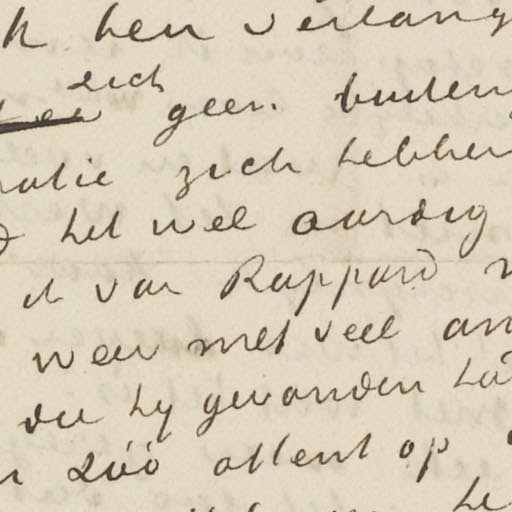 k ben verlang
zich
geen buiten
matie zich hebben
het wel aardig
ik van Rappard
weer met veel am
die hij gevonden had
zóó attent op
he